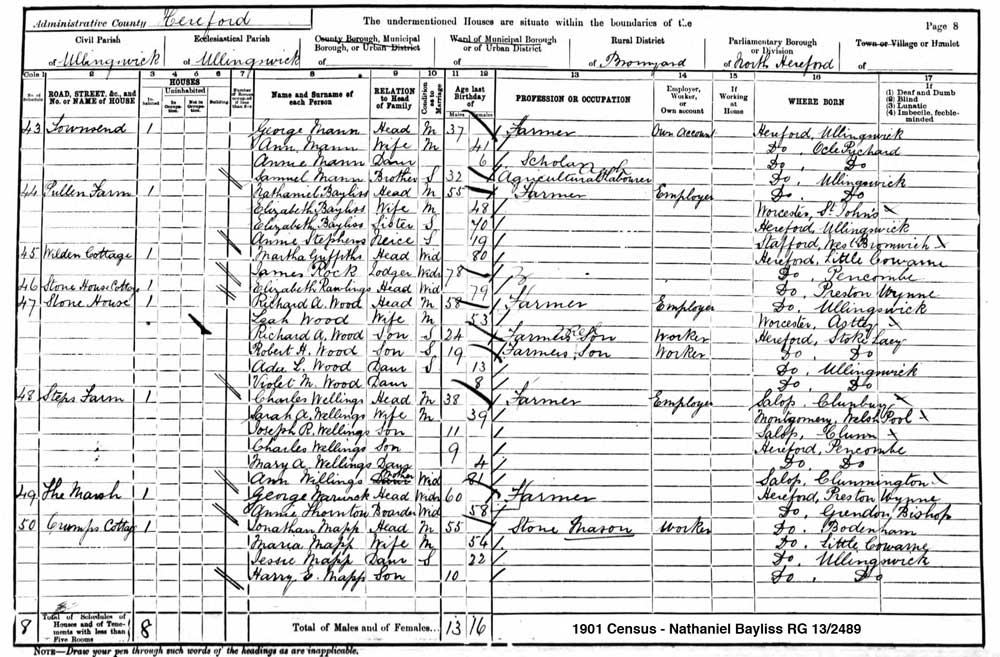 Administrative County Hereford The undermentioned Houses are situate within the boundaries of the Page 8
Civil Parish Ecclesiastical Parish County Borough, Municipal Borough, or Urban District Ward of Municipal Borough or of Urban District Rural District Parliamentary Borough or Division Town or Village or Hamlet
of Ullingswick of Ullingswick of of of Bromyard of North Hereford of
Cols 1 2 3 4 5 6 7 8 9 10 11 12 13 14 15 16 17
No. of Schedule ROAD, STREET, &c., and No. or NAME of HOUSE HOUSES Inhabited Uninhabited In Occupation Not in Occupation Building Number of Rooms occupied if less than five Name and Surname of each Person RELATION to Head of Family Condition as to Marriage Age last Birthday of Males Females PROFESSION OR OCCUPATION Employer, Worker, or Own account If Working at Home WHERE BORN If (1) Deaf and Dumb (2) Blind (3) Lunatic (4) Imbecile, feeble-minded
43 Townsend 1 George Mann Head M 37 Farmer Own Account Hereford, Ullingswick
Ann Mann Wife M 41 Do Ocle Pichard
Annie Mann Daur 6 Scholar Do, Do
Samuel Mann Brother S 32 Agricultural Labourer Do, Ullingswick
44 Pullen Farm 1 Nathaniel Bayliss Head M 55 Farmer Employer Do, Do
Elizabeth Bayliss Wife M 48 Worcester, St John's
Elizabeth Bayliss Sister S 40 Hereford, Ullingswick
Annie Stephens Niece S 19 Stafford, West Bromwich
45 Wilden Cottage 1 Martha Griffiths Head Wid 80 Hereford, Little Cowarne
James Rock Lodger Widr 78 Do, Pencombe
46 Stone House Cottage 1 Elizabeth Rawlings Head Wid 79 Do, Preston Wynne
47 Stone House 1 Richard A. Wood Head M 58 Farmer Employer Do, Ullingswick
Leah Wood Wife M 53 Worcester, Astley
Richard A. Wood Son S 24 Farmers Son Worker Hereford, Stoke Lacy
Robert H. Wood Son S 19 Farmers Son Worker Do, Do
Ada L. Wood Daur S 13 Do, Ullingswick
Violet M. Wood Daur 8 Do, Do
48 Steps Farm 1 Charles Wellings Head M 38 Farmer Employer Salop, Clunbury
Sarah A. Wellings Wife M 39 Montgomery, Welsh Pool
Joseph R. Wellings Son 11 Salop, Clunn
Charles Wellings Son 9 Hereford, Pencombe
Mary A. Wellings Daur 4 Do, Do
Ann Willings Mother Wid Salop, Clunnington
49 The Marsh 1 George Head Widr 60 Farmer Hereford, Preston Wynne
Annie Thornton Boarder Wid 58 Do, Grendon Bishop
50 Crumps Cottage 1 Jonathan Mapp Head M 55 Stone Mason Worker Do, Bodenham
Maria Mapp Wife M 54 Do, Little Cowarne
Jessie Mapp Daur S 22 Do, Ullingswick
Harry E. Mapp Son 10 Do, Do
8 Total of Schedules of Houses and of Tenements with less than Five Rooms 8 Total of Males and of Females... 13 16
1901 Census - Nathaniel Bayliss RG 13/2489
NOTE—Draw your pen through such words of the headings as are inapplicable.